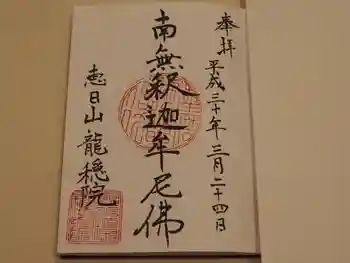 奉拝
平成三十年三月二十四日
南無釋迦牟尼佛
恵日山龍穏院